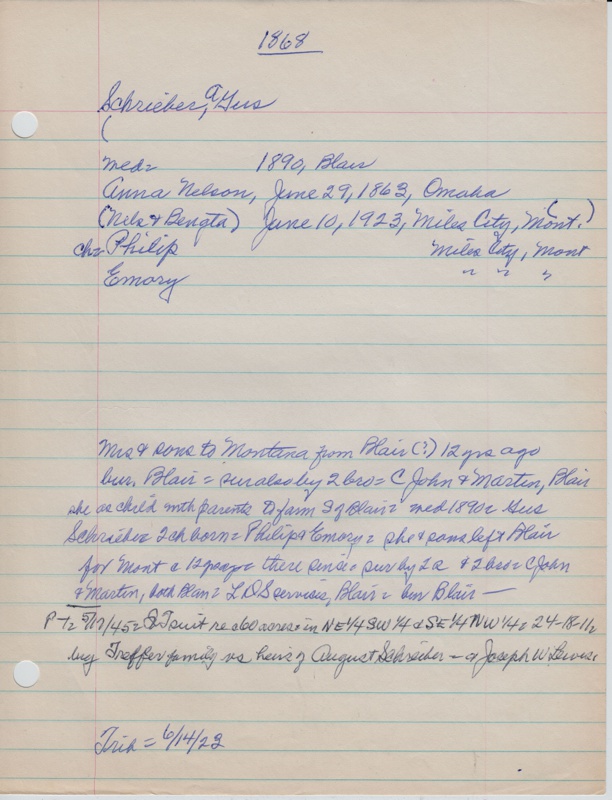 1868
Schrieber, A Gus
(
med= 1890, Blair
Anna Nelson, June 29, 1863, Omaha
(Nels & Bengta) June 10, 1923, Miles City, Mont. ( )
ch= Philip Miles City, Mont
Emory " " "
Mrs & sons to Montana from Blair (?) 12 yrs ago
bur. Blair = sur also by 2 bro = C John & Martin, Blair
she as child with parents to farm S of Blair = med 1890 = Gus
Schrieber = 2 ch born = Philip & Emory = she & sons left Blair
for Mont c 12 yrs ago = there since = sur by 2 s & 2 bro = C John
& Martin, both Blair = LDS servisis, Blair = bur Blair —
P-T= 5/17/45 = QT suit re 260 acres in NE 1/4 SW 1/4 & SE 1/4 NW 1/4 = 24-18-11=
by Treffer family vs heirs of August Schreiber — & Joseph W. Lewis=
Trib = 6/14/23